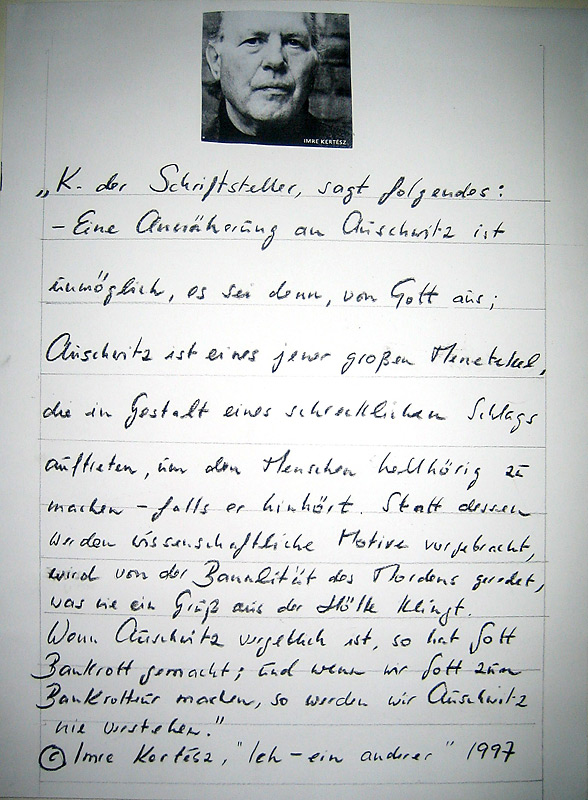 IMRE KERTÉSZ
„K. der Schriftsteller, sagt folgendes:
– Eine Annäherung an Auschwitz ist
unmöglich, es sei denn, von Gott aus;
Auschwitz ist eines jener großen Menetekel,
die in Gestalt eines schrecklichen Schlags
auftreten, um den Menschen hellhörig zu
machen – falls er hinhört. Statt dessen
werden wissenschaftliche Motive vorgebracht,
wird von der Banalität des Mordens geredet,
was wie ein Gruß aus der Hölle klingt.
Wenn Auschwitz vergeblich ist, so hat Gott
Bankrott gemacht; und wenn wir Gott zum
Bankrotteur machen, so werden wir Auschwitz
nie verstehen."
© Imre Kertész, "Ich – ein anderer" 1997